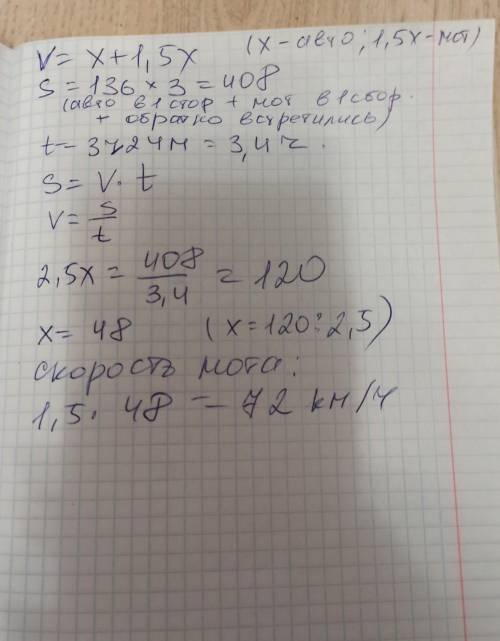 V = x + 1,5x (x - авто; 1,5x - мот)
S = 136 × 3 = 408
(авто в 1 стор + мот в 1 сбор.
+ обратно встретились)
t - 3ч 24 м = 3,4 ч.
S = V · t
V = S/t
2,5x = 408/3,4 = 120
x = 48 (x = 120 : 2,5)
скорость мота:
1,5 · 48 = 72 км/ч